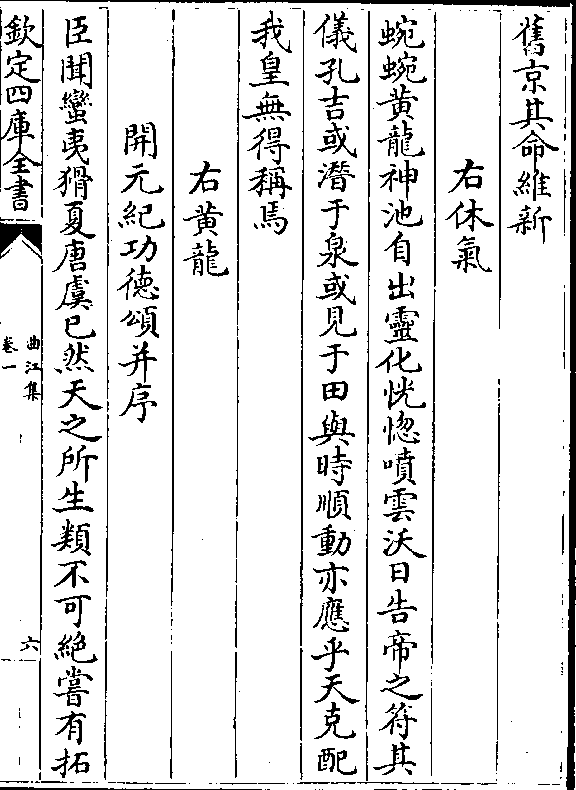 舊京其命維新
右休氣
蜿蜿黄龍神池自出靈化恍惚噴雲沃日告帝之符其
儀孔吉或潛于泉或見于田與時順動亦應乎天克配
我皇無得稱焉
右黄龍
開元紀功德頌并序
臣聞蠻夷猾夏唐虞已然天之所生類不可絶嘗有拓
欽定四庫全書
曲江集
卷一
六